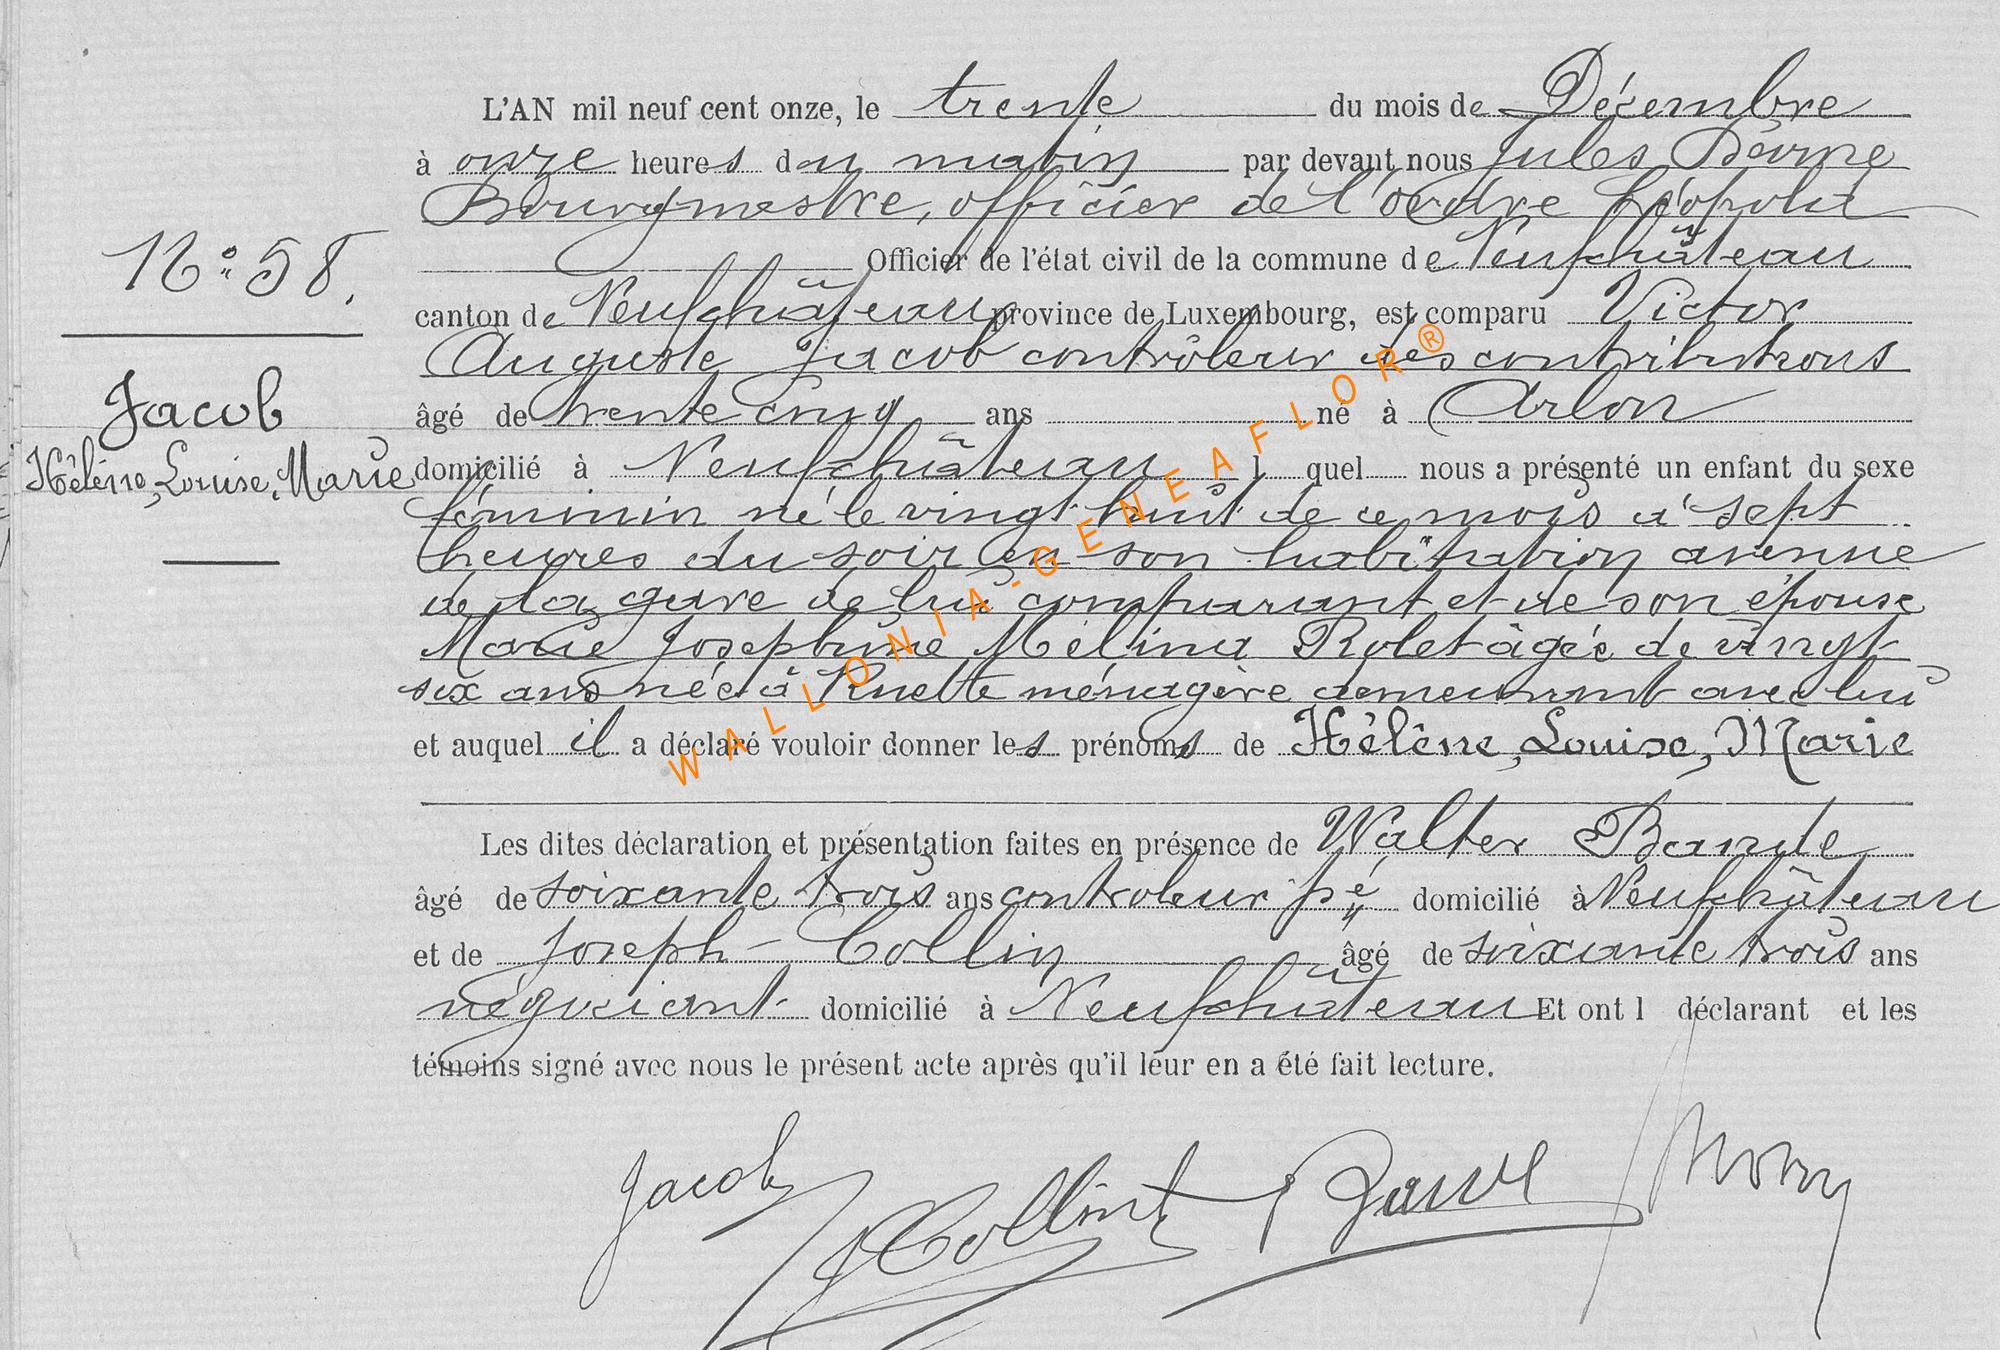 L'AN mil neuf cent onze, le trente du mois de Décembre
à onze heures du matin par devant nous Jules
Bourgmestre, officier de l'ordre Léopold
Officier de l'état civil de la commune de Neufchâteau
N° 58.
canton de Neufchâteau province de Luxembourg, est comparu Victor
Auguste Jacob contrôleur des contributions
Jacob
âgé de trente cinq ans né à Arlon
Hélène, Louise, Marie
domicilié à Neufchâteau l quel nous a présenté un enfant du sexe
féminin né le vingt huit de ce mois à sept
heures du soir en son habitation avenue
de la gare de lui comparant et de son épouse
Marie Josephine Mélina Rolet âgée de vingt
six ans née à Ruette ménagère demeurant avec lui
et auquel il a déclaré vouloir donner les prénoms de Hélène, Louise, Marie
WALLONIA-GENEAFLOR®
Les dites déclaration et présentation faites en présence de Walter
âgé de soixante trois ans controleur pé domicilié à Neufchâteau
et de Joseph Collin âgé de soixante trois ans
négociant domicilié à Neufchâteau Et ont l déclarant et les
témoins signé avec nous le présent acte après qu'il leur en a été fait lecture.
Jacob